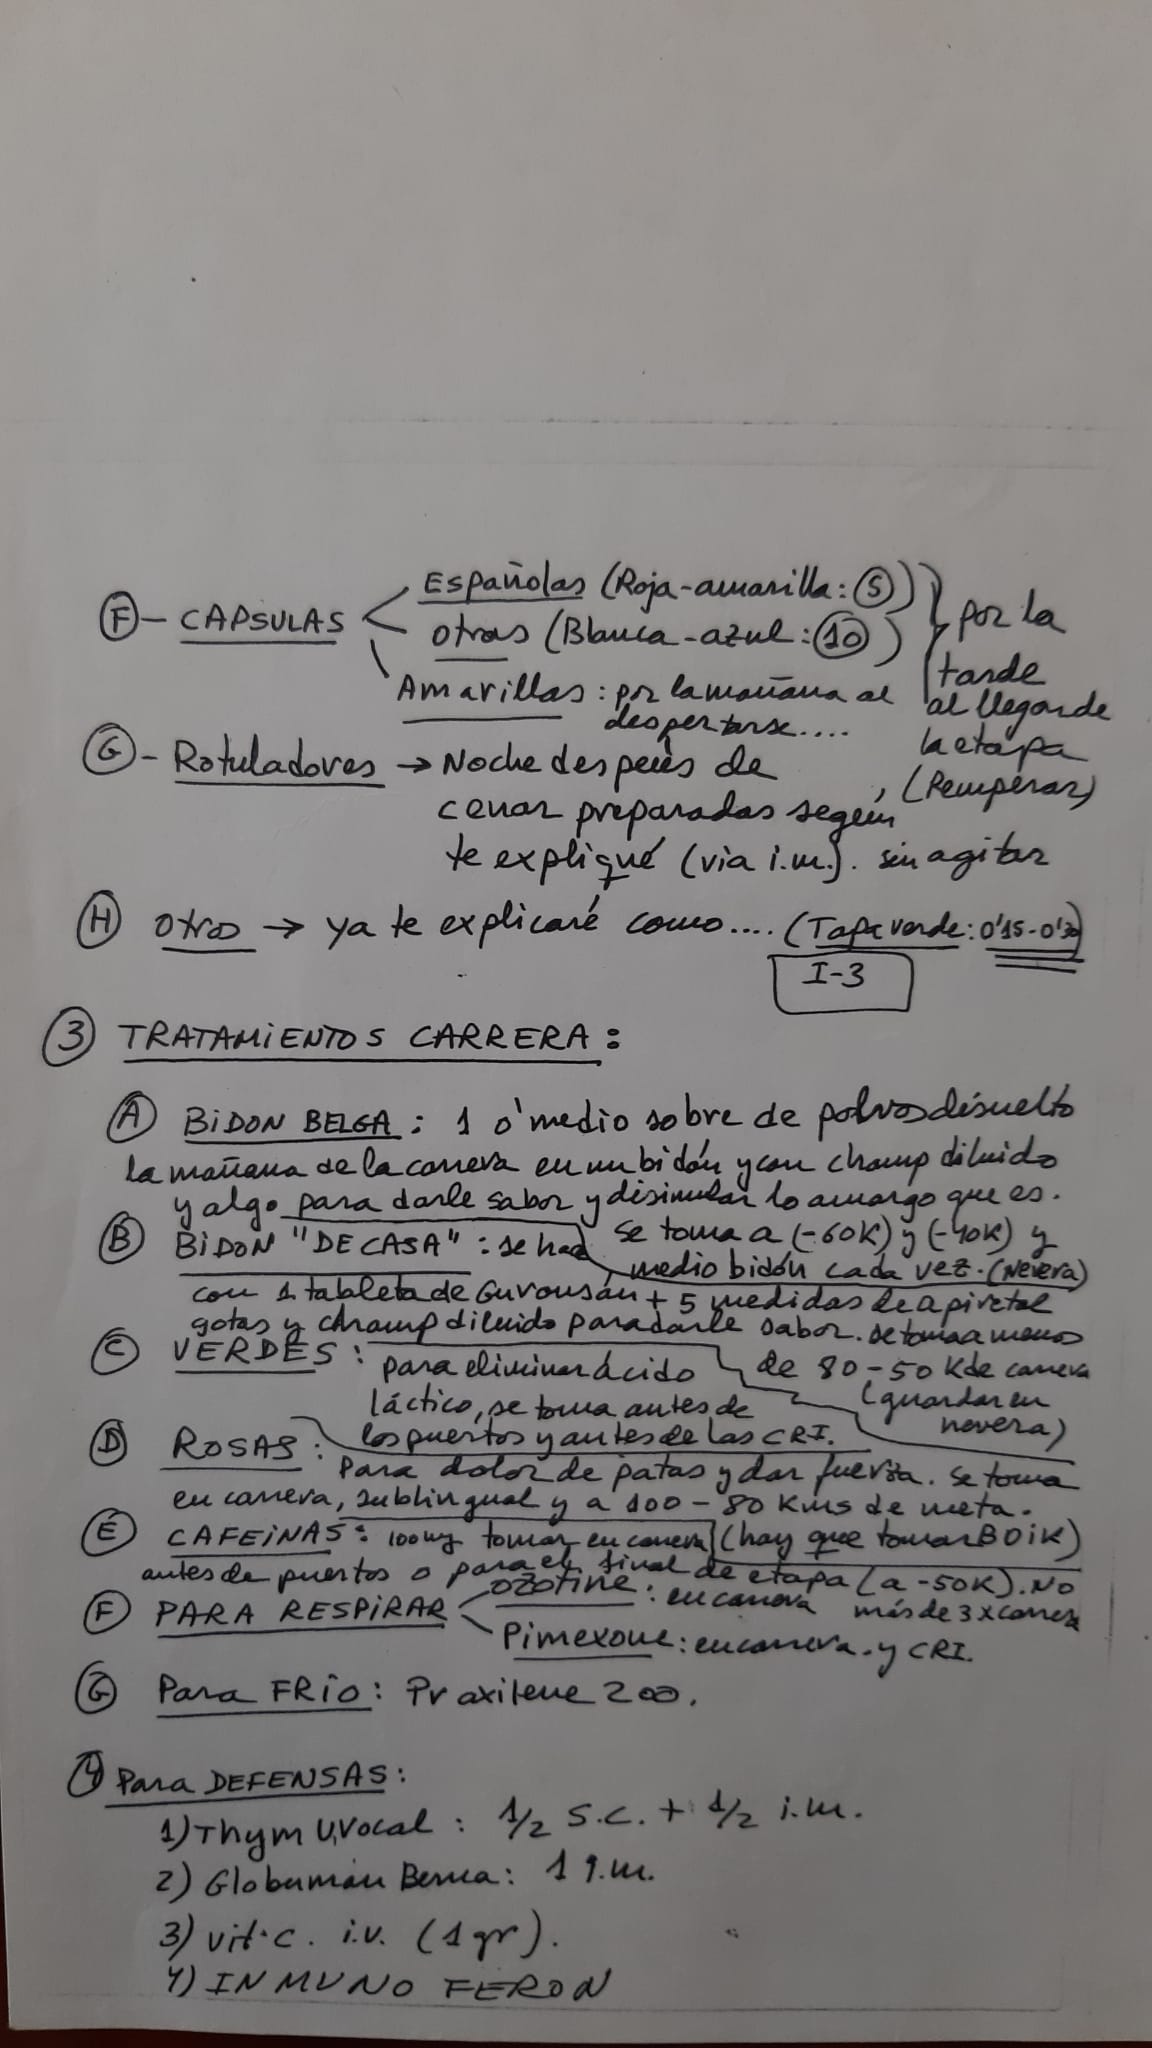 F - CAPSULAS
Españolas (Roja-amarilla: 5)
otras (Blanca-azul: 10)
por la
tarde
al llegar de
la etapa
(Recuperar)
Amarillas: por la mañana al
despertarse....
G - Rotuladores → Noche después de
cenar preparadas según
te expliqué (via i.m.). sin agitar
H otro → ya te explicaré como.... (Tapa verde: 0'15-0'30)
I-3
3 TRATAMIENTOS CARRERA:
A BIDON BELGA: 1 ó medio sobre de polvos disuelto
la mañana de la carrera en un bidón y con champ diluido
y algo para darle sabor y disimular lo amargo que es.
Se toma a (-60K) y (-40K) y
medio bidón cada vez. (Nevera)
B BIDON "DE CASA": se hace
con 1 tableta de Guronsán + 5 medidas de apiretal
gotas y champ diluido para darle sabor. se toma a menos
de 80-50 K de carrera
(guardar en
nevera)
C VERDES: para eliminar ácido
láctico, se toma antes de
los puertos y antes de las CRI.
D ROSAS: Para dolor de patas y dar fuerza. Se toma
en carrera, sublingual y a 100-80 Kms de meta.
E CAFEINAS: 100mg tomar en carrera (hay que tomar 80iK)
antes de puertos o para el final de etapa (a -50K). No
más de 3 x carrera
F PARA RESPIRAR
OZOTINE: en carrera
Pimexone: en carrera. y CRI.
G Para FRIO: Praxilene 200.
4 Para DEFENSAS:
1) Thym Uvocal: 1/2 s.c. + 1/2 i.m.
2) Globuman Berna: 1 i.m.
3) vit.c. i.v. (1 gr).
4) INMUNO FERON